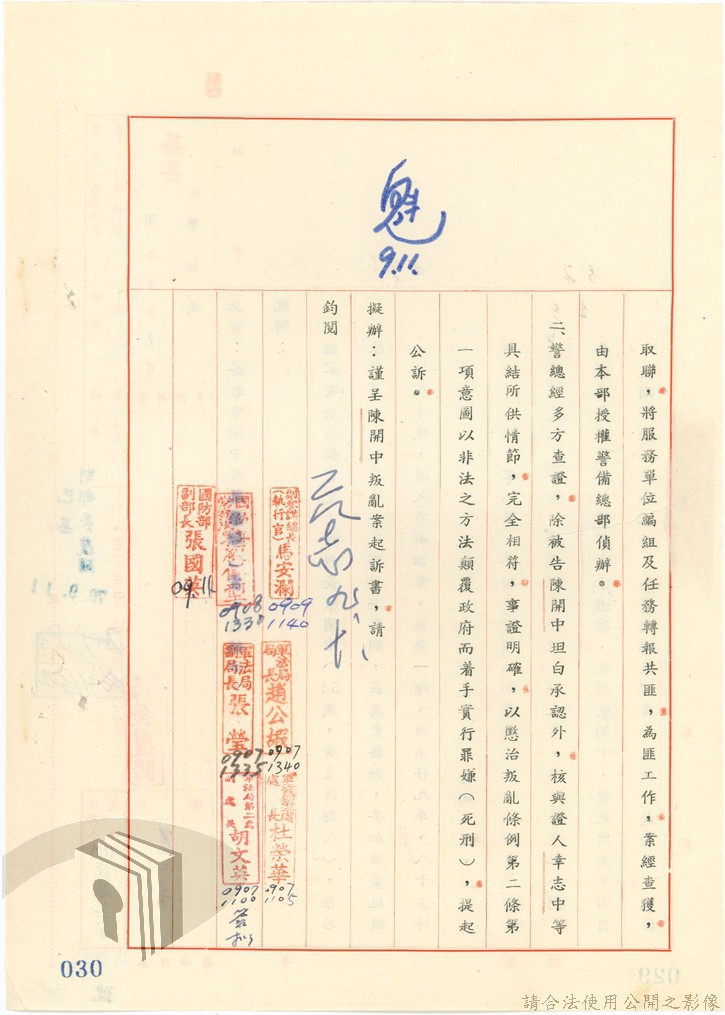 9.11.
取聯，將服務單位編組及任務轉報共匪，為匪工作，案經查獲，
由本部授權警備總部偵辦。
二、警總經多方查證，除被告陳開中坦白承認外，核與證人章志中等
具結所供情節，完全相符，事證明確，以懲治叛亂條例第二條第
一項意圖以非法之方法顛覆政府而着手實行罪嫌（死刑），提起
公訴。
擬辦：謹呈陳開中叛亂案起訴書，請
鈞閱
（執行官）馬安瀾
0909
1140
軍法局
局長
趙公嘏
0907
1340
處長
杜榮華
0907
1105
0908
1330
軍法局
副局長
張瑩
0907
1335
軍法局第二處
副處長
胡文英
0907
1100
簽擬
國防部
副部長
張國英
09.11.
030
029
請合法使用公開之影像